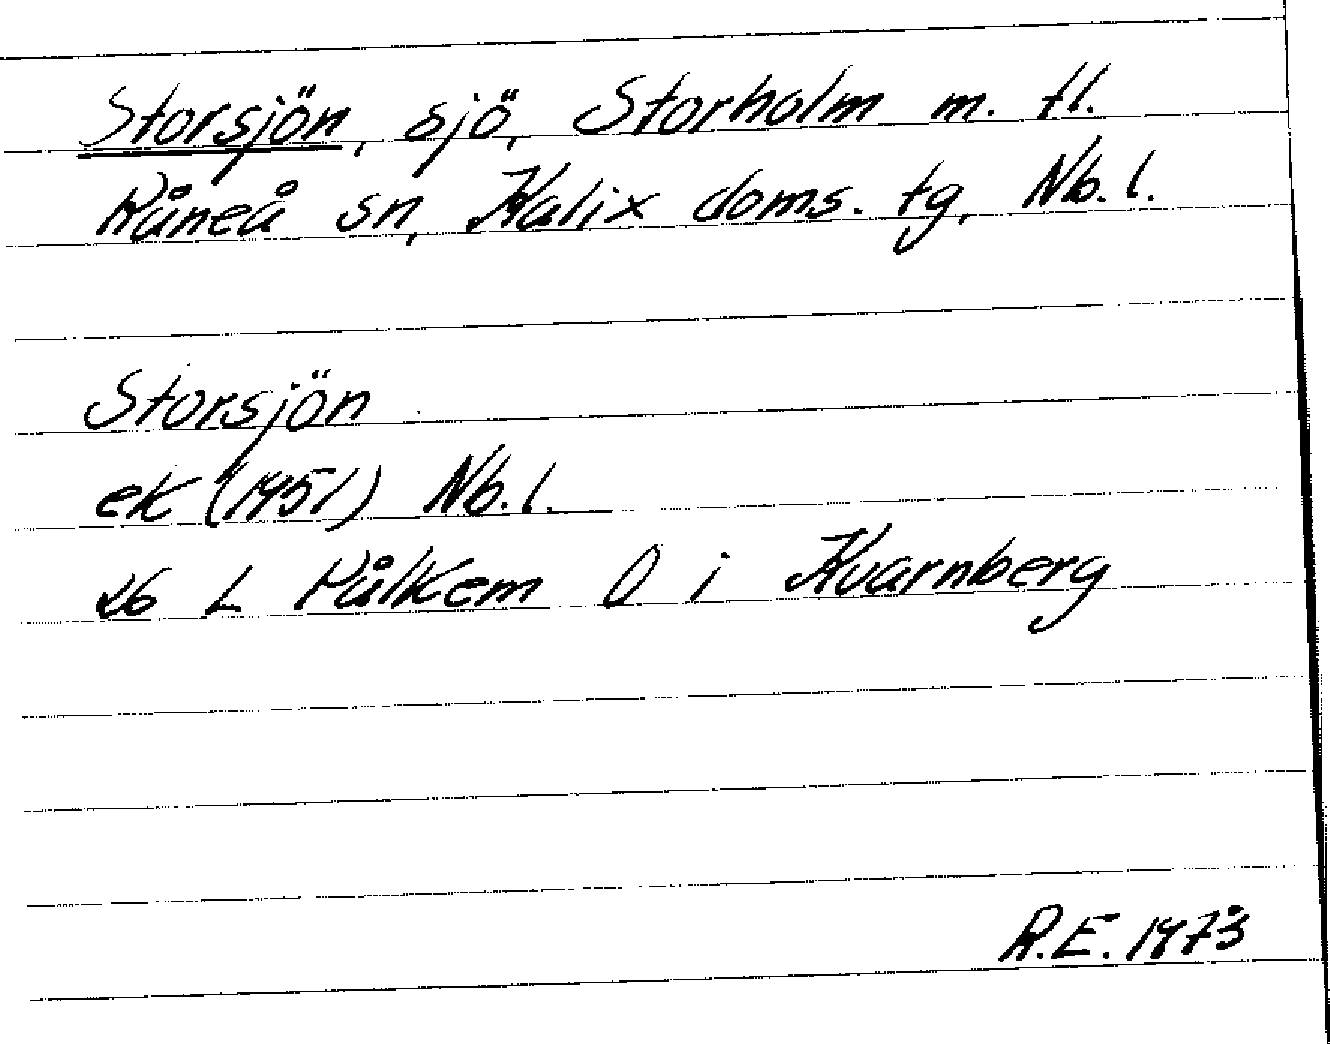 Storsjön, sjö, Storholm m. fl.
Råneå sn, Kalix doms. tg, Nb. l.
Storsjön
ek (1951) Nb. l.
26 L Pålkem O i Kvarnberg
R.E. 1973